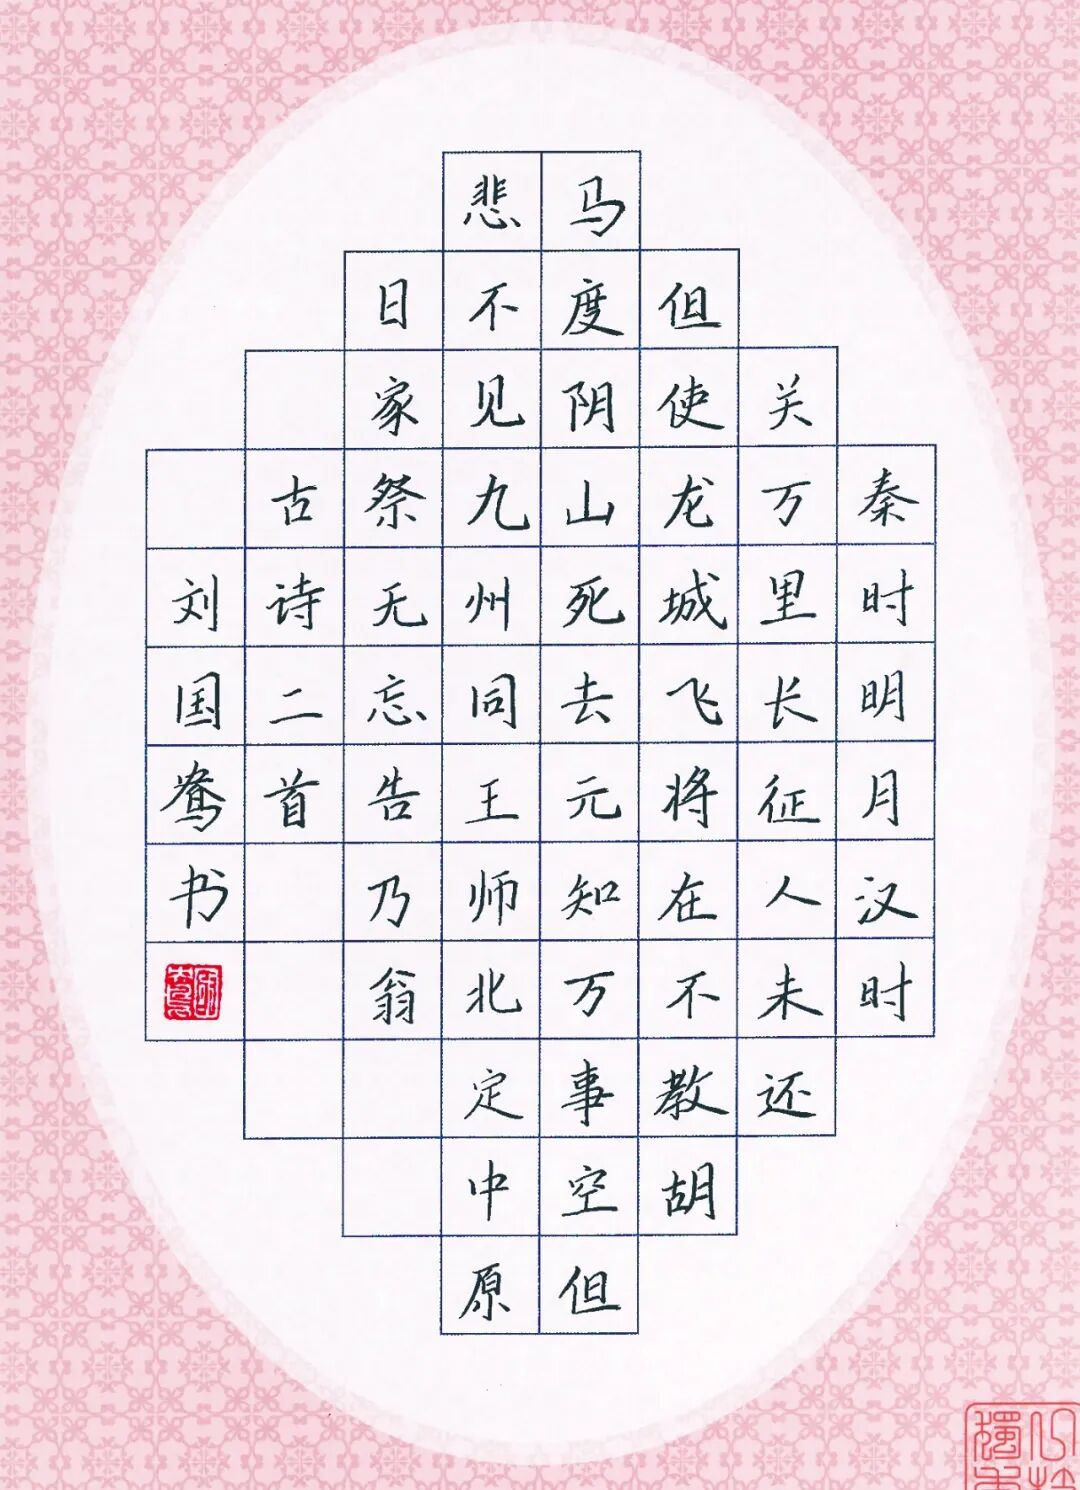 秦时明月汉时
关万里长征人未还
但使龙城飞将在不教胡
马度阴山死去元知万事空但
悲不见九州同王师北定中原
日家祭无忘告乃翁
古诗二首
刘国书